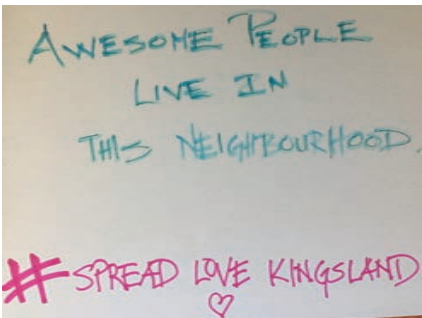 AWESOME PEOPLE
LIVE IN
THIS NEIGHBOURHOOD.
#SPREAD LOVE KINGSLAND